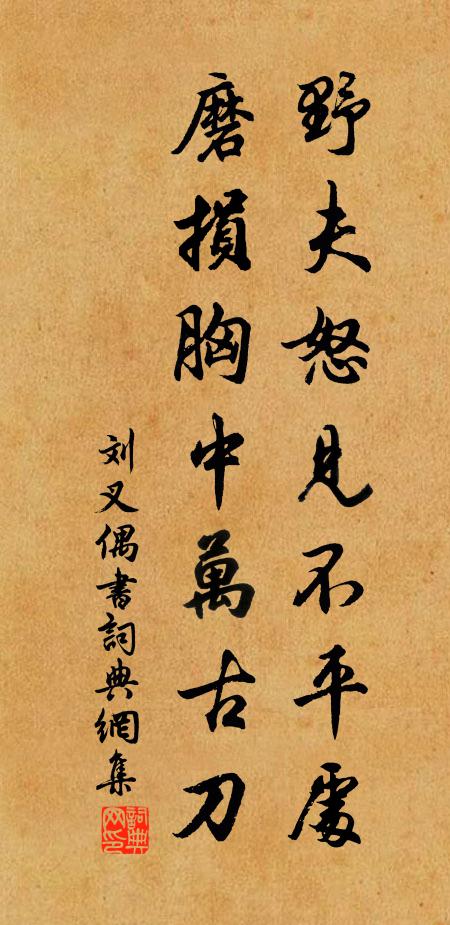 野夫怒見不平處
磨損胸中萬古刀
刘叉偶書詞典網集
詞典网印